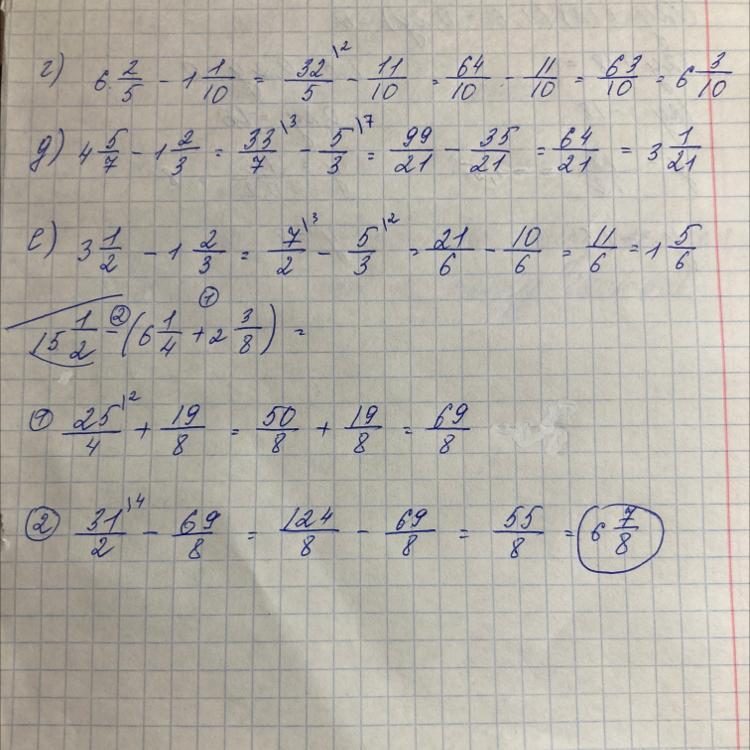 г) 6 2/5 - 1 1/10 = 32/5 \2 - 11/10 = 64/10 - 11/10 = 63/10 = 6 3/10
д) 4 5/7 - 1 2/3 = 33/7 \3 - 5/3 \7 = 99/21 - 35/21 = 64/21 = 3 1/21
е) 3 1/2 - 1 2/3 = 7/2 \3 - 5/3 \2 = 21/6 - 10/6 = 11/6 = 1 5/6
15 1/2 ②- (6 1/4 ①+ 2 3/8) =
① 25/4 \2 + 19/8 = 50/8 + 19/8 = 69/8
② 31/2 \4 - 69/8 = 124/8 - 69/8 = 55/8 = 6 7/8